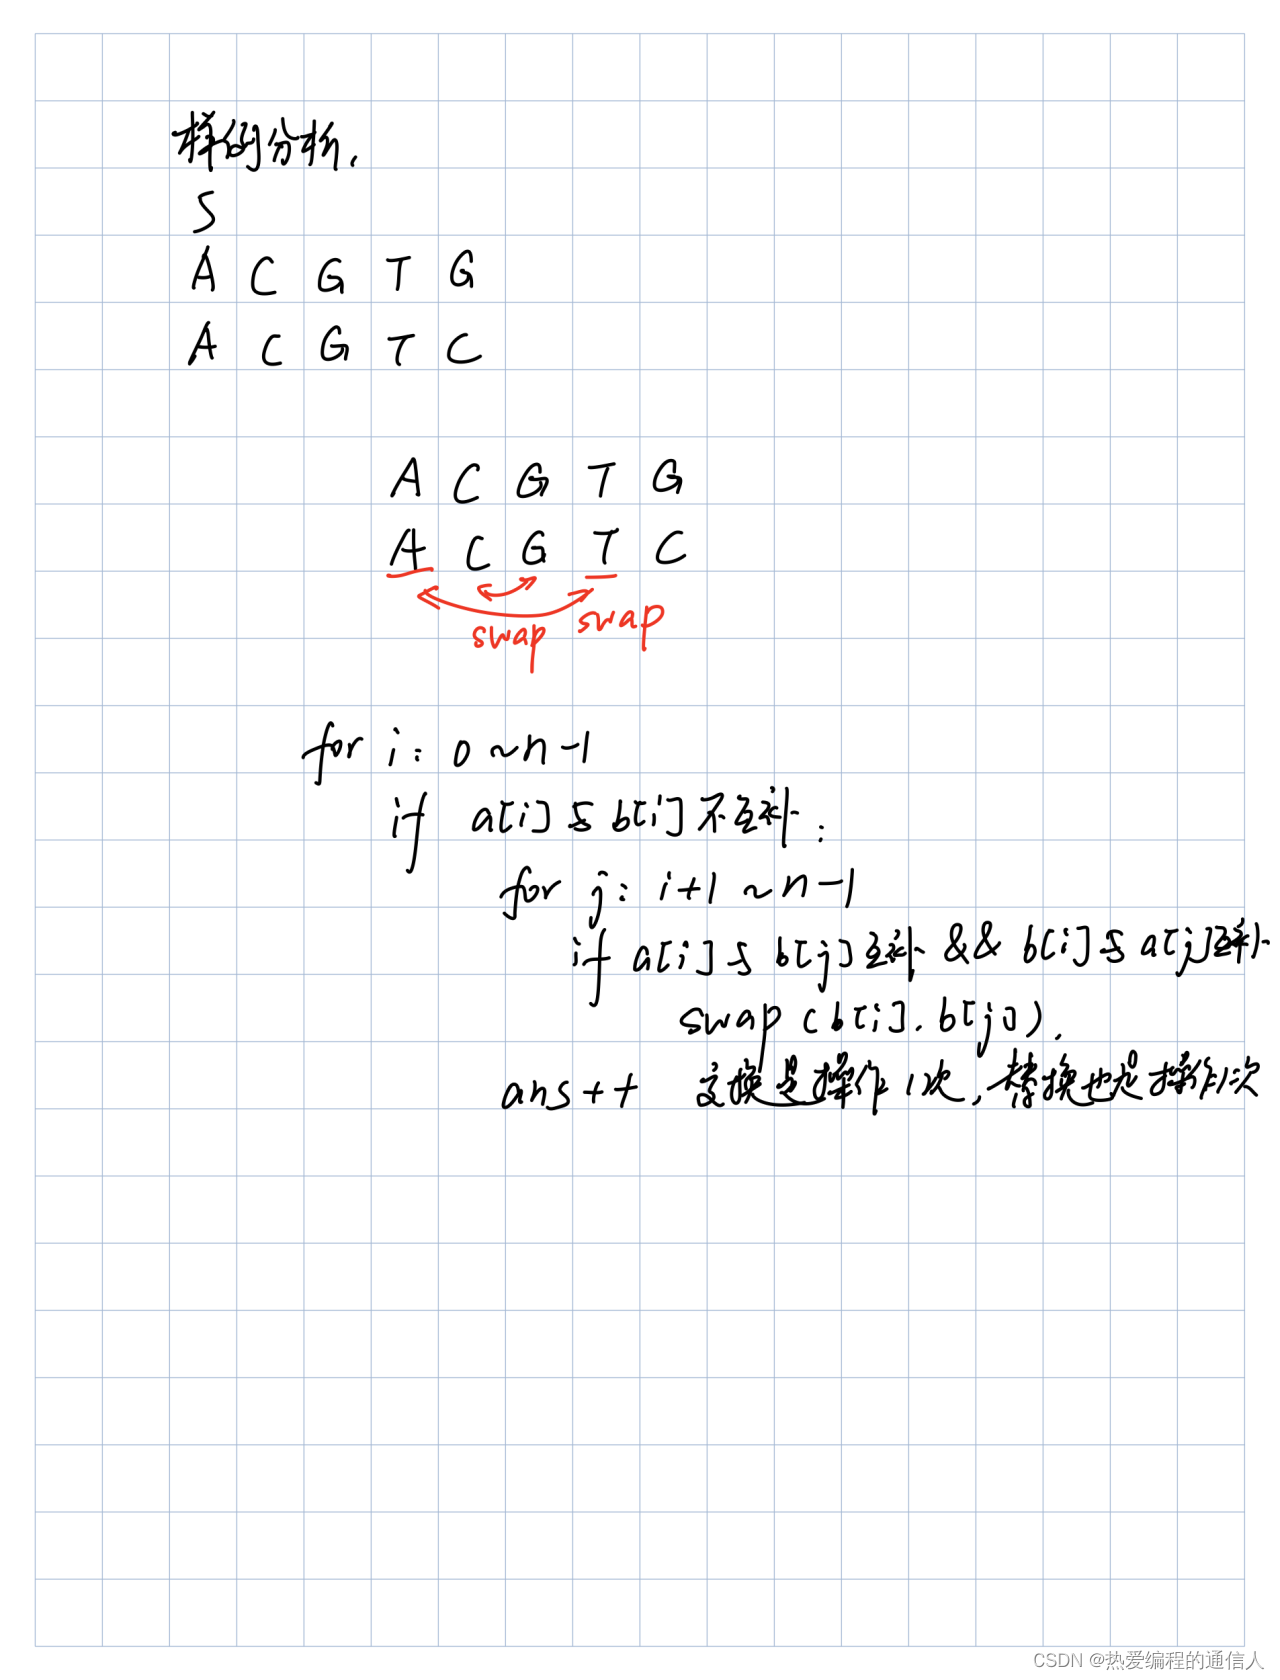 样例分析,
5
A C G T G
A C G T C
A C G T G
A C G T C
swap swap
for i: 0 ~ n-1
if a[i] 与 b[i] 不互补:
for j: i+1 ~ n-1
if a[i] 与 b[j] 互补 && b[i] 与 a[j] 互补
swap (b[i], b[j]).
ans++ 交换是操作1次, 替换也是操作1次
CSDN @热爱编程的通信人